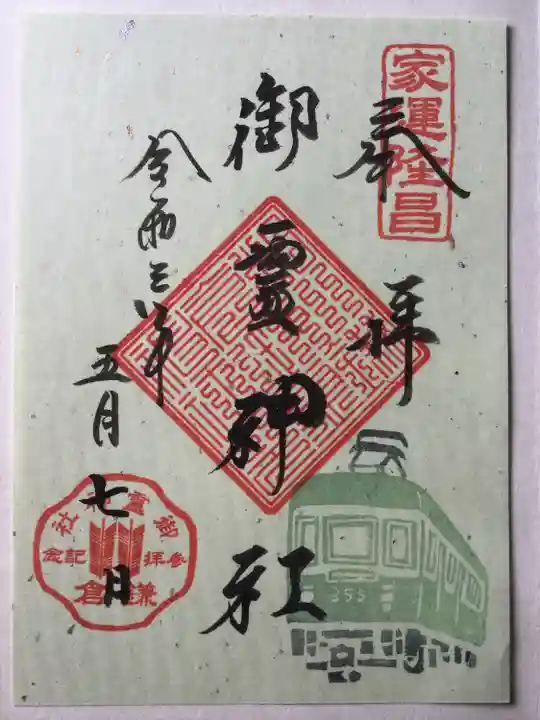 家運隆昌
奉拝
御霊神社
令和三年
五月七日
御霊神社
参拝記念
鎌倉
355